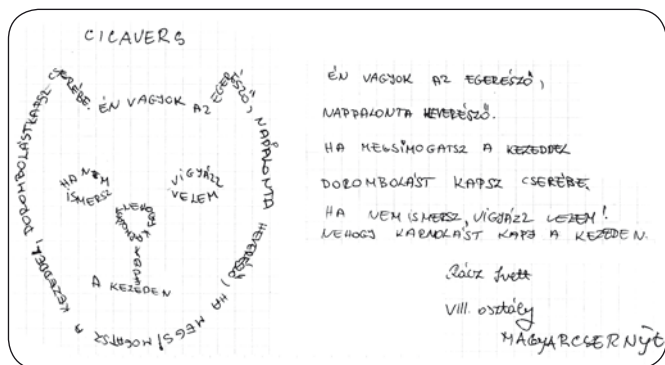 CICAVERS
ÉN VAGYOK AZ EGERÉSZŐ, NAPPALONTA HEVERÉSZŐ, HA MEGSIMOGATSZ A KEZEDDEL, DOROMBOLÁST KAPSZ CSERÉBE.
HA NEM
ISMERSZ
VIGYÁZZ
VELEM
NEHOGY
A KEZEDEN
ÉN VAGYOK AZ EGERÉSZŐ,
NAPPALONTA HEVERÉSZŐ.
HA MEGSIMOGATSZ A KEZEDDEL
DOROMBOLÁST KAPSZ CSERÉBE.
HA NEM ISMERSZ, VIGYÁZZ VELEM!
NEHOGY KARMOLÁST KAPJ A KEZEDEN.
Rácz Ivett
VIII. osztály
MAGYARCSERNYE